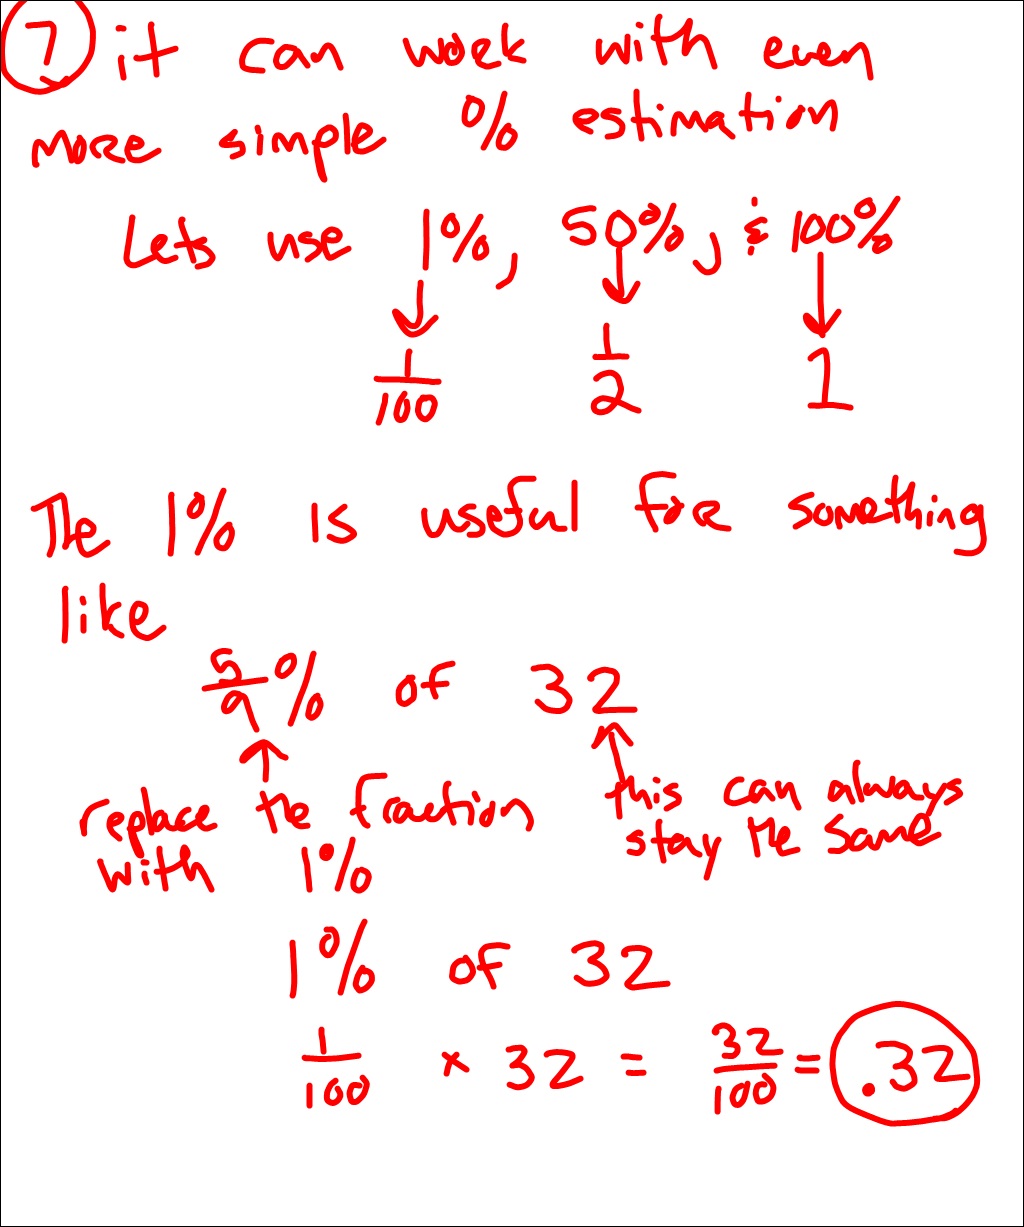 7 it can work with even
more simple % estimation
Lets use 1%, 50%, & 100%
1/100 1/2 1
The 1% is useful for something
like
5/9% of 32
replace the fraction this can always
with 1% stay the same
1% of 32
1/100 × 32 = 32/100 = .32